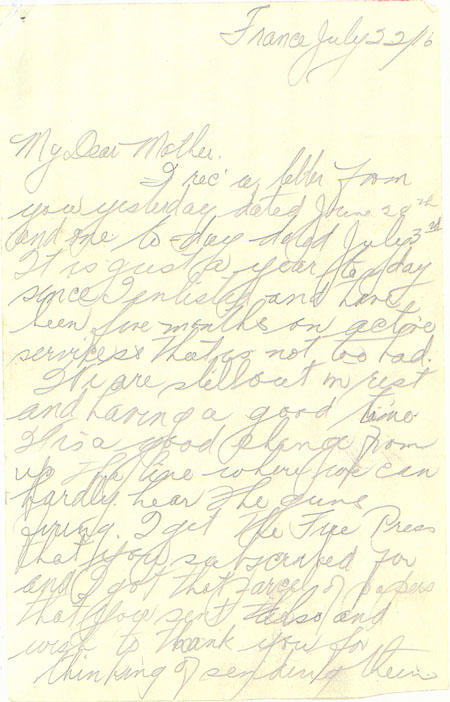 France July 22/16
My Dear Mother.
I rec' a letter from
you yesterday dated June 29th
and one to-day dated July 3rd
It is just a year to day
since I enlisted and have
been five months on active
service that is not too bad.
We are still out in rest
and having a good time
It is a good change from
up the line where we can
hardly hear the guns
firing. I get the Free Press
that you subscribed for
and I got that parcel of papers
that you sent also and
wish to thank you for
thinking of sending them